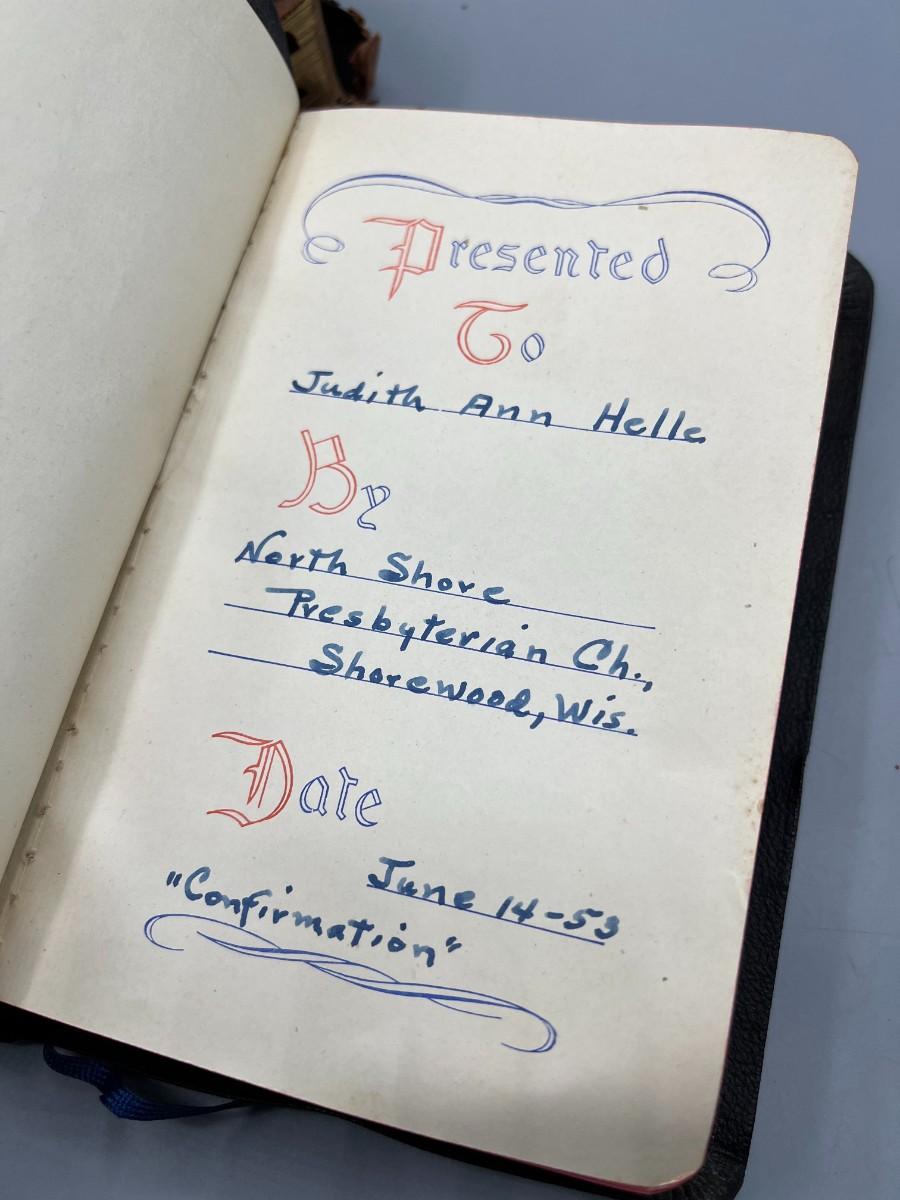 Presented
To
Judith Ann Helle
By
North Shore
Presbyterian Ch.,
Shorewood, Wis.
Date
June 14-53
"Confirmation"